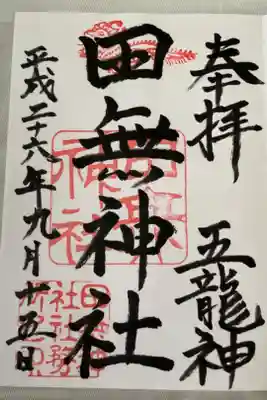 奉拝
五龍神
田無神社
平成二十六年九月廿五日